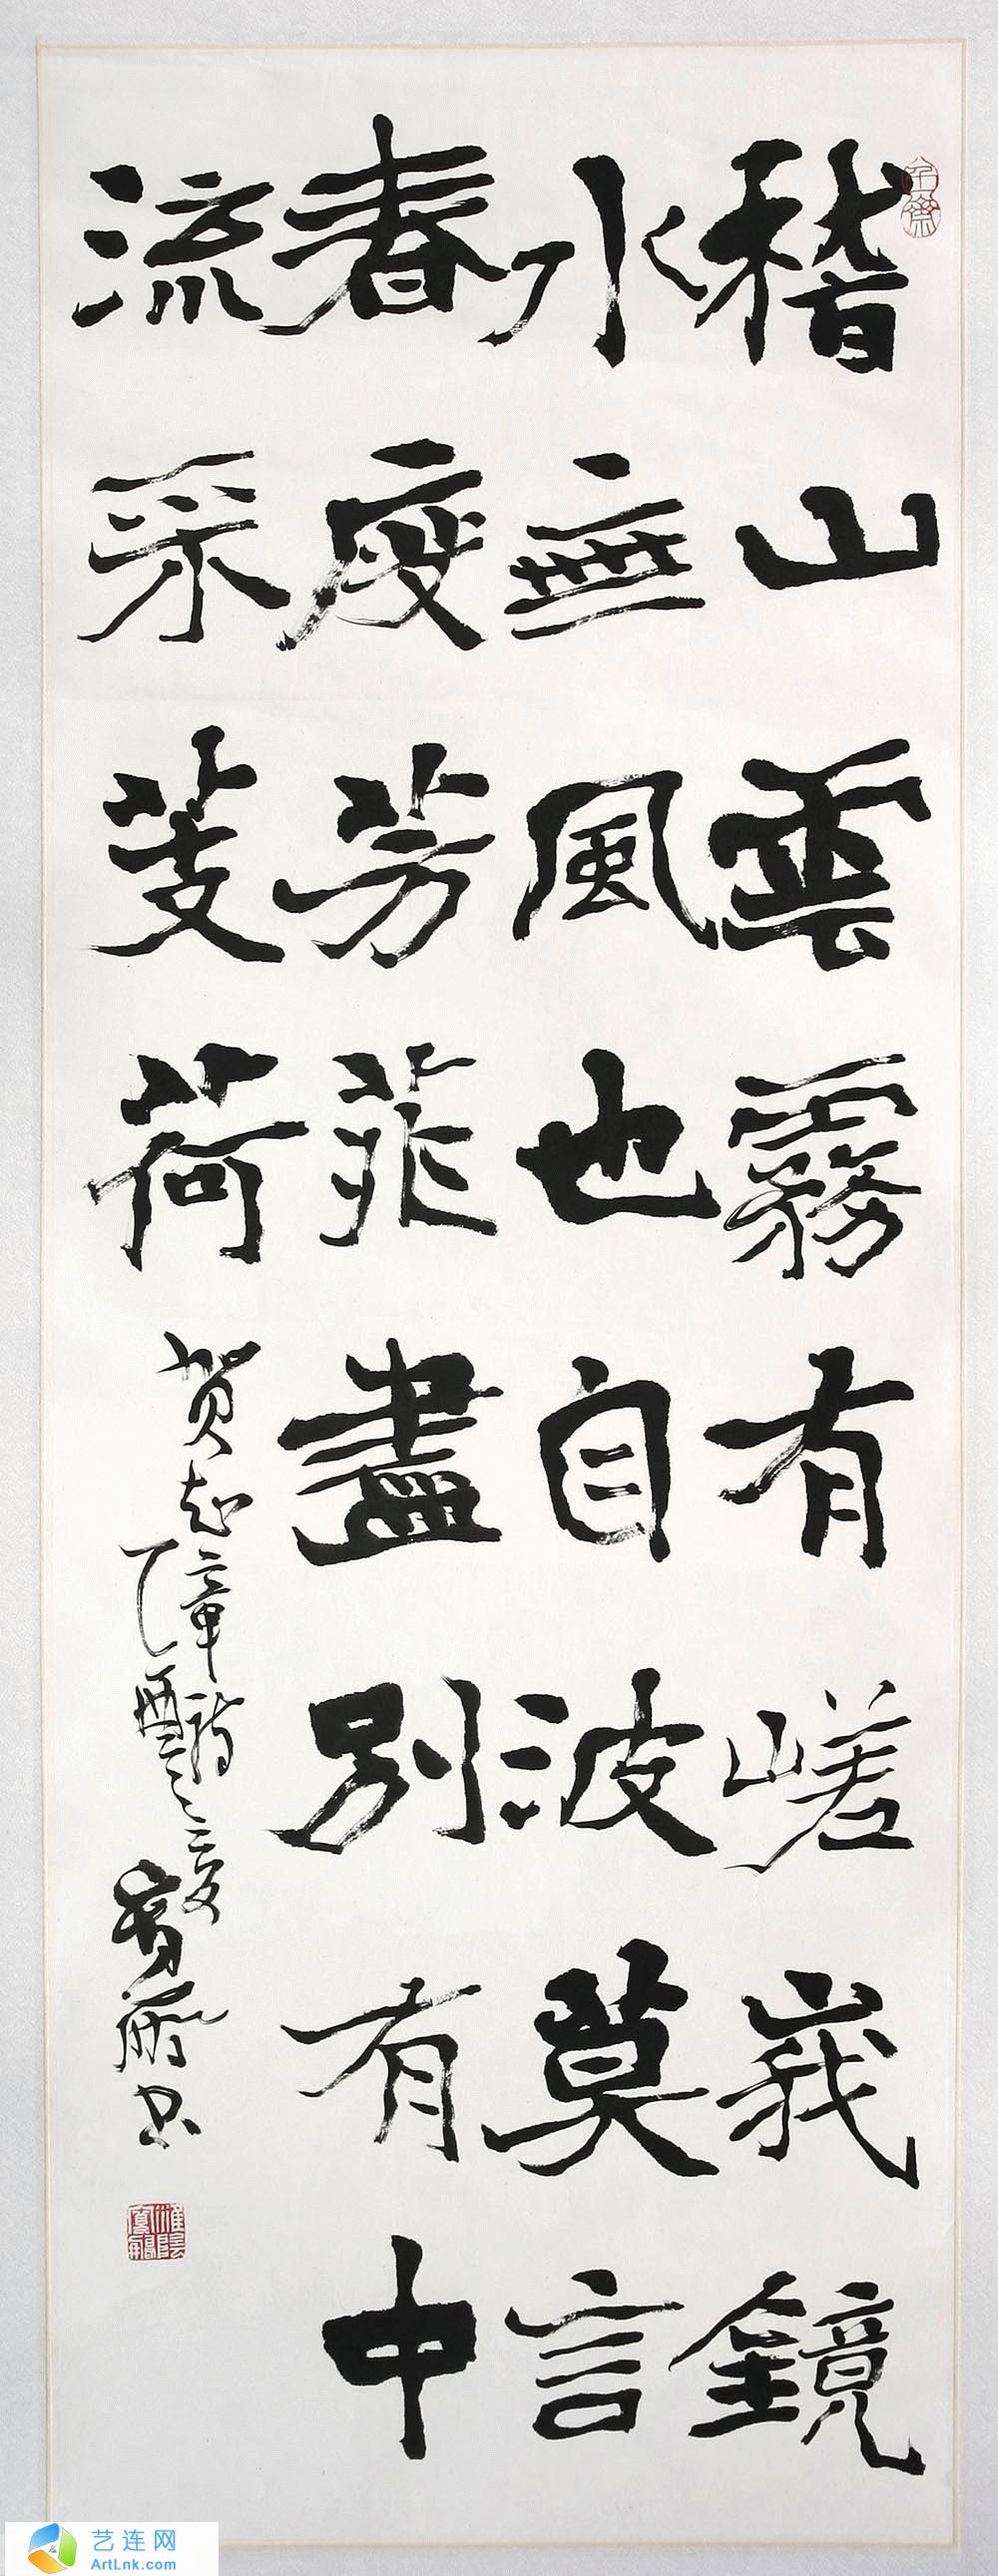 稽山雲霧有嵯峨鏡
水無風也自波莫言
春度芳菲盡別有中
流采芰荷
贺知章詩
乙酉之夏
書
艺连网
ArtLnk.com